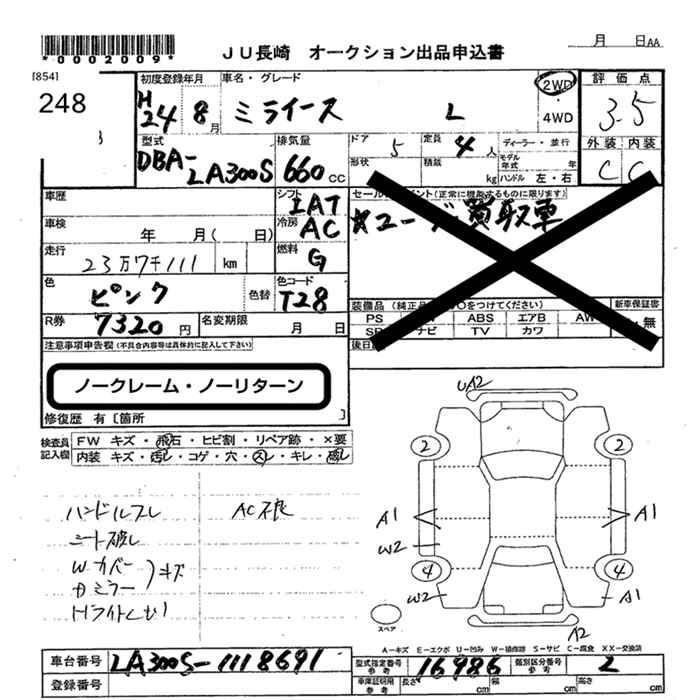 *0002009*
JU長崎 オークション出品申込書
月 日AA
[854]
248
初度登録年月
H24 8月
車名・グレード
ミライース L
2WD
4WD
評価点
3.5
外装 内装
C C
型式
DBA-LA300S
排気量
660cc
ドア 5
定員 4人
ディーラー・並行
形状
積載 kg
モデル年式 年
ハンドル 左・右
車歴
シフト IAT
車検 年 月( 日)
冷房 AC
走行 23万7千111 km
燃料 G
色 ピンク 色替
色コード T28
R券 7320円
名変期限 月 日
(正常に機能するものに限ります)
☆ユーザー買取車
装備品
をつけてください)
新車保証書
無
PS ABS エアB AW
ナビ TV カワ
後日
注意事項申告欄(不具合内容等は具体的に記入して下さい)
ノークレーム・ノーリターン
修復歴 有〔箇所 〕
検査員記入欄
FW キズ・飛石・ヒビ割・リペア跡・×要
内装 キズ・汚レ・コゲ・穴・スレ・キレ・破レ
ハンドルスレ
シート破レ
Wカバー
Dミラー
キズ
Hライトくもり
AC不良
UA2
2 2
A1 A1
W2
4 4
W2 A1
A2
スペア
A-キズ E-エクボ U-凹み W-補修跡 S-サビ C-腐食 XX-交換済
車台番号 LA300S-1118691
登録番号
型式指定番号参考 16986
類別区分番号参考 2
車庫証明用参考 長さ cm 幅 cm 高さ cm